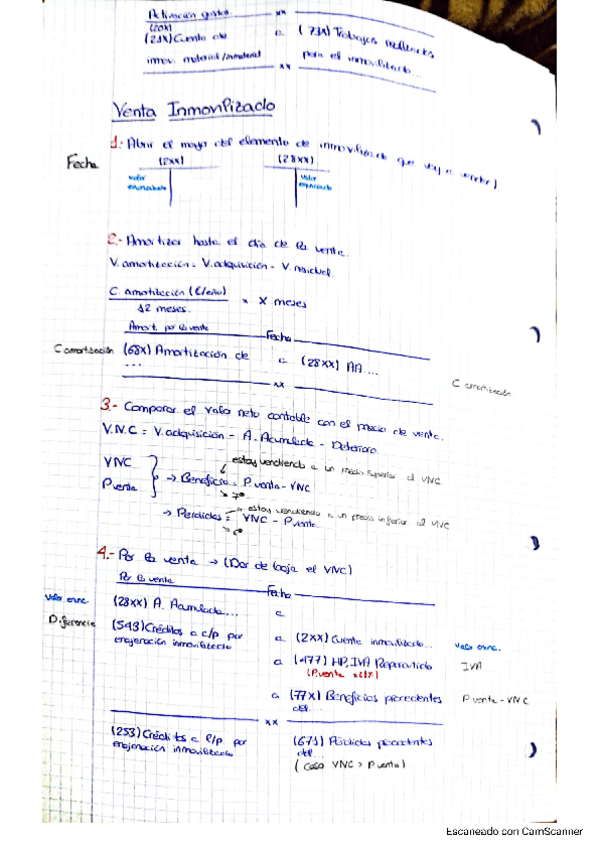 Activación gastos
xx
(20x)
(21x) Cuenta de
a (73x) Trabajos realizados
inmov. material/inmaterial
para el inmovilizado...
xx
Venta Inmovilizado
1.- Abrir el mayor del elemento de inmovilizado que voy a vender)
Fecha
(2xx)
(28xx)
Valor
enunciado
Valor
enunciado
2.- Amortizar hasta el día de la venta.
V. amortización = V. adquisición - V. residual.
C. amortización (€/año)
x X meses
12 meses.
Amort. por la venta
Fecha
C amortización
(68x) Amortización de
...
a (28xx) AA ...
C amortización
xx
3.- Comparar el valor neto contable con el precio de venta.
V.N.C = V. adquisición - A. Acumulada - Deterioro.
VNC
estoy vendiendo a un precio superior al VNC
P venta
→ Beneficio = P venta - VNC
estoy vendiendo a un precio inferior al VNC
→ Pérdidas = VNC - P venta
4.- Por la venta → (Dar de baja el VNC)
Por la venta
Fecha
Valor enunc.
(28xx) A. Acumulada...
a
Diferencia
(543) Créditos a c/p por
enajenación inmovilizado
a (2xx) Cuenta inmovilizado...
Valor enunc.
a (477) HP, IVA Repercutido
IVA
(P. venta x 21%)
a (77x) Beneficios procedentes
del...
P venta - VNC
xx
(253) Créditos a l/p por
enajenación inmovilizado
(671) Pérdidas procedentes
del...
(caso VNC > P venta)
Escaneado con CamScanner